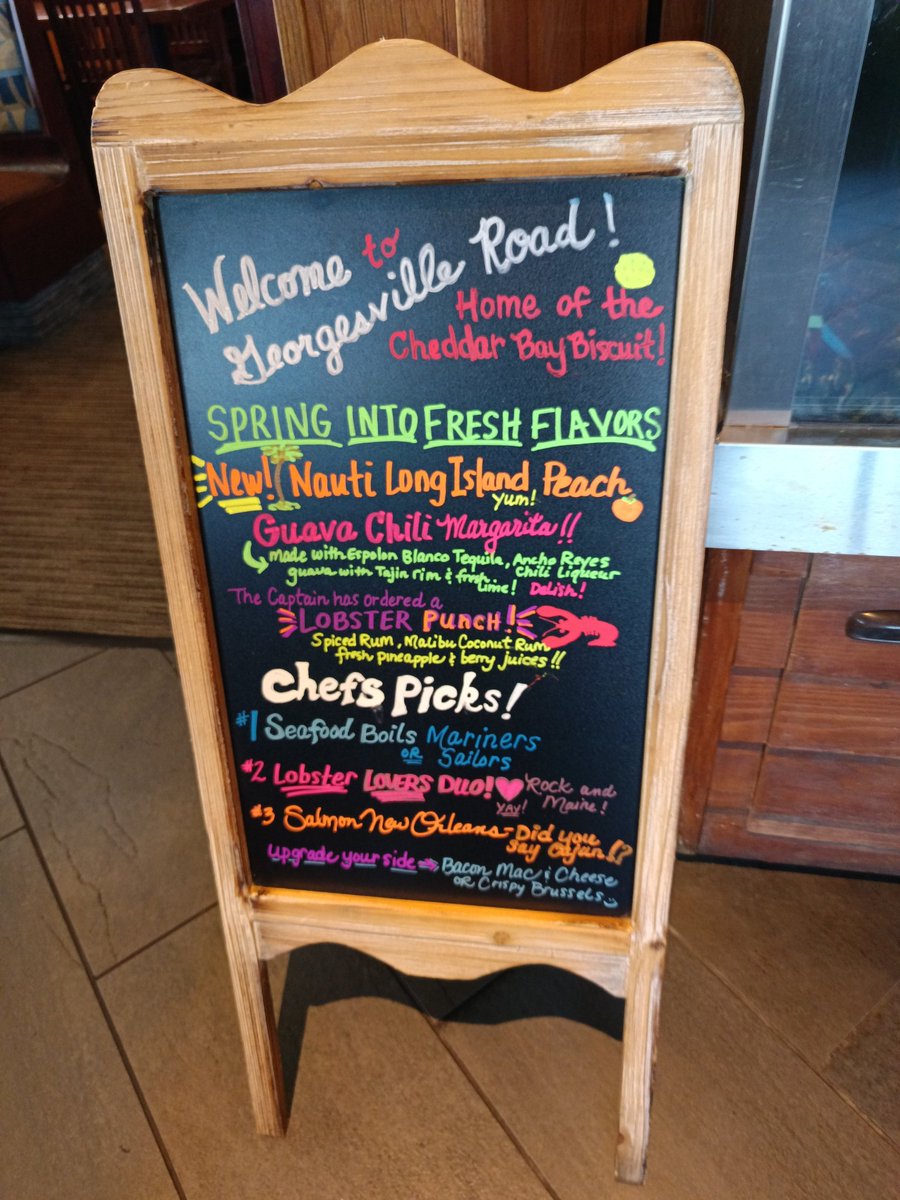 Welcome to
Georgesville Road!
Home of the
Cheddar Bay Biscuit!
SPRING INTO FRESH FLAVORS
New! Nauti Long Island Peach
Yum!
Guava Chili Margarita!!
made with Espolon Blanco Tequila, Ancho Reyes
Chili Liqueur
guava with Tajin rim & fresh
lime! Delish!
The Captain has ordered a
LOBSTER PUNCH!
Spiced Rum, Malibu Coconut Rum
fresh pineapple & berry juices!!
Chefs Picks!
#1 Seafood Boils Mariners
OR Sailors
#2 Lobster LOVERS DUO! Rock and
YAY! Maine!
#3 Salmon New Orleans - Did you
say Cajun!?
upgrade your side ⇒ Bacon Mac & Cheese
OR Crispy Brussels